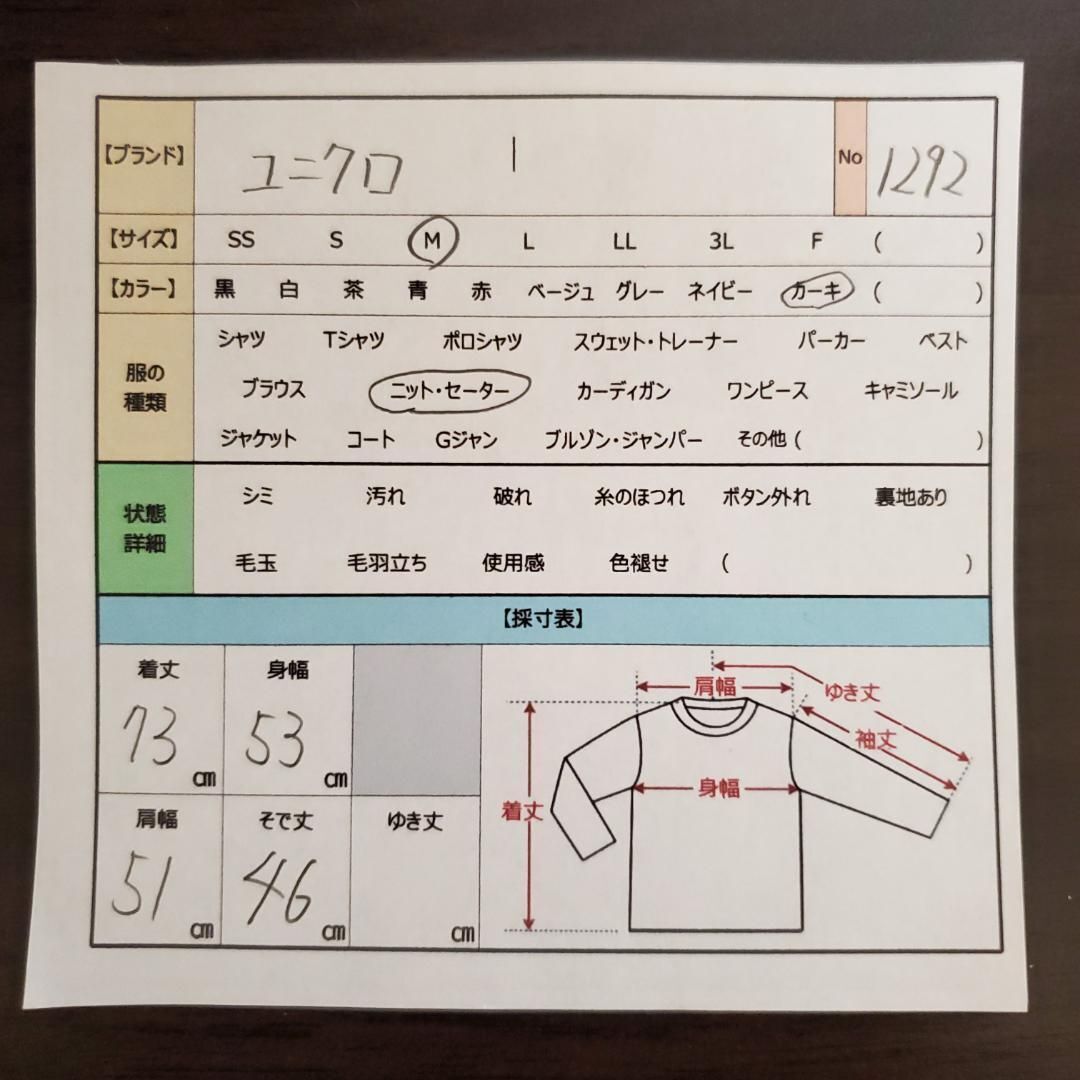 【ブランド】 ユニクロ No 1292
【サイズ】 SS S M L LL 3L F ( )
【カラー】 黒 白 茶 青 赤 ベージュ グレー ネイビー カーキ ( )
服の種類
シャツ Tシャツ ポロシャツ スウェット・トレーナー パーカー ベスト
ブラウス ニット・セーター カーディガン ワンピース キャミソール
ジャケット コート Gジャン ブルゾン・ジャンパー その他 ( )
状態詳細
シミ 汚れ 破れ 糸のほつれ ボタン外れ 裏地あり
毛玉 毛羽立ち 使用感 色褪せ ( )
【採寸表】
着丈 身幅
73 cm 53 cm
肩幅 そで丈 ゆき丈
51 cm 46 cm cm
肩幅
ゆき丈
袖丈
身幅
着丈